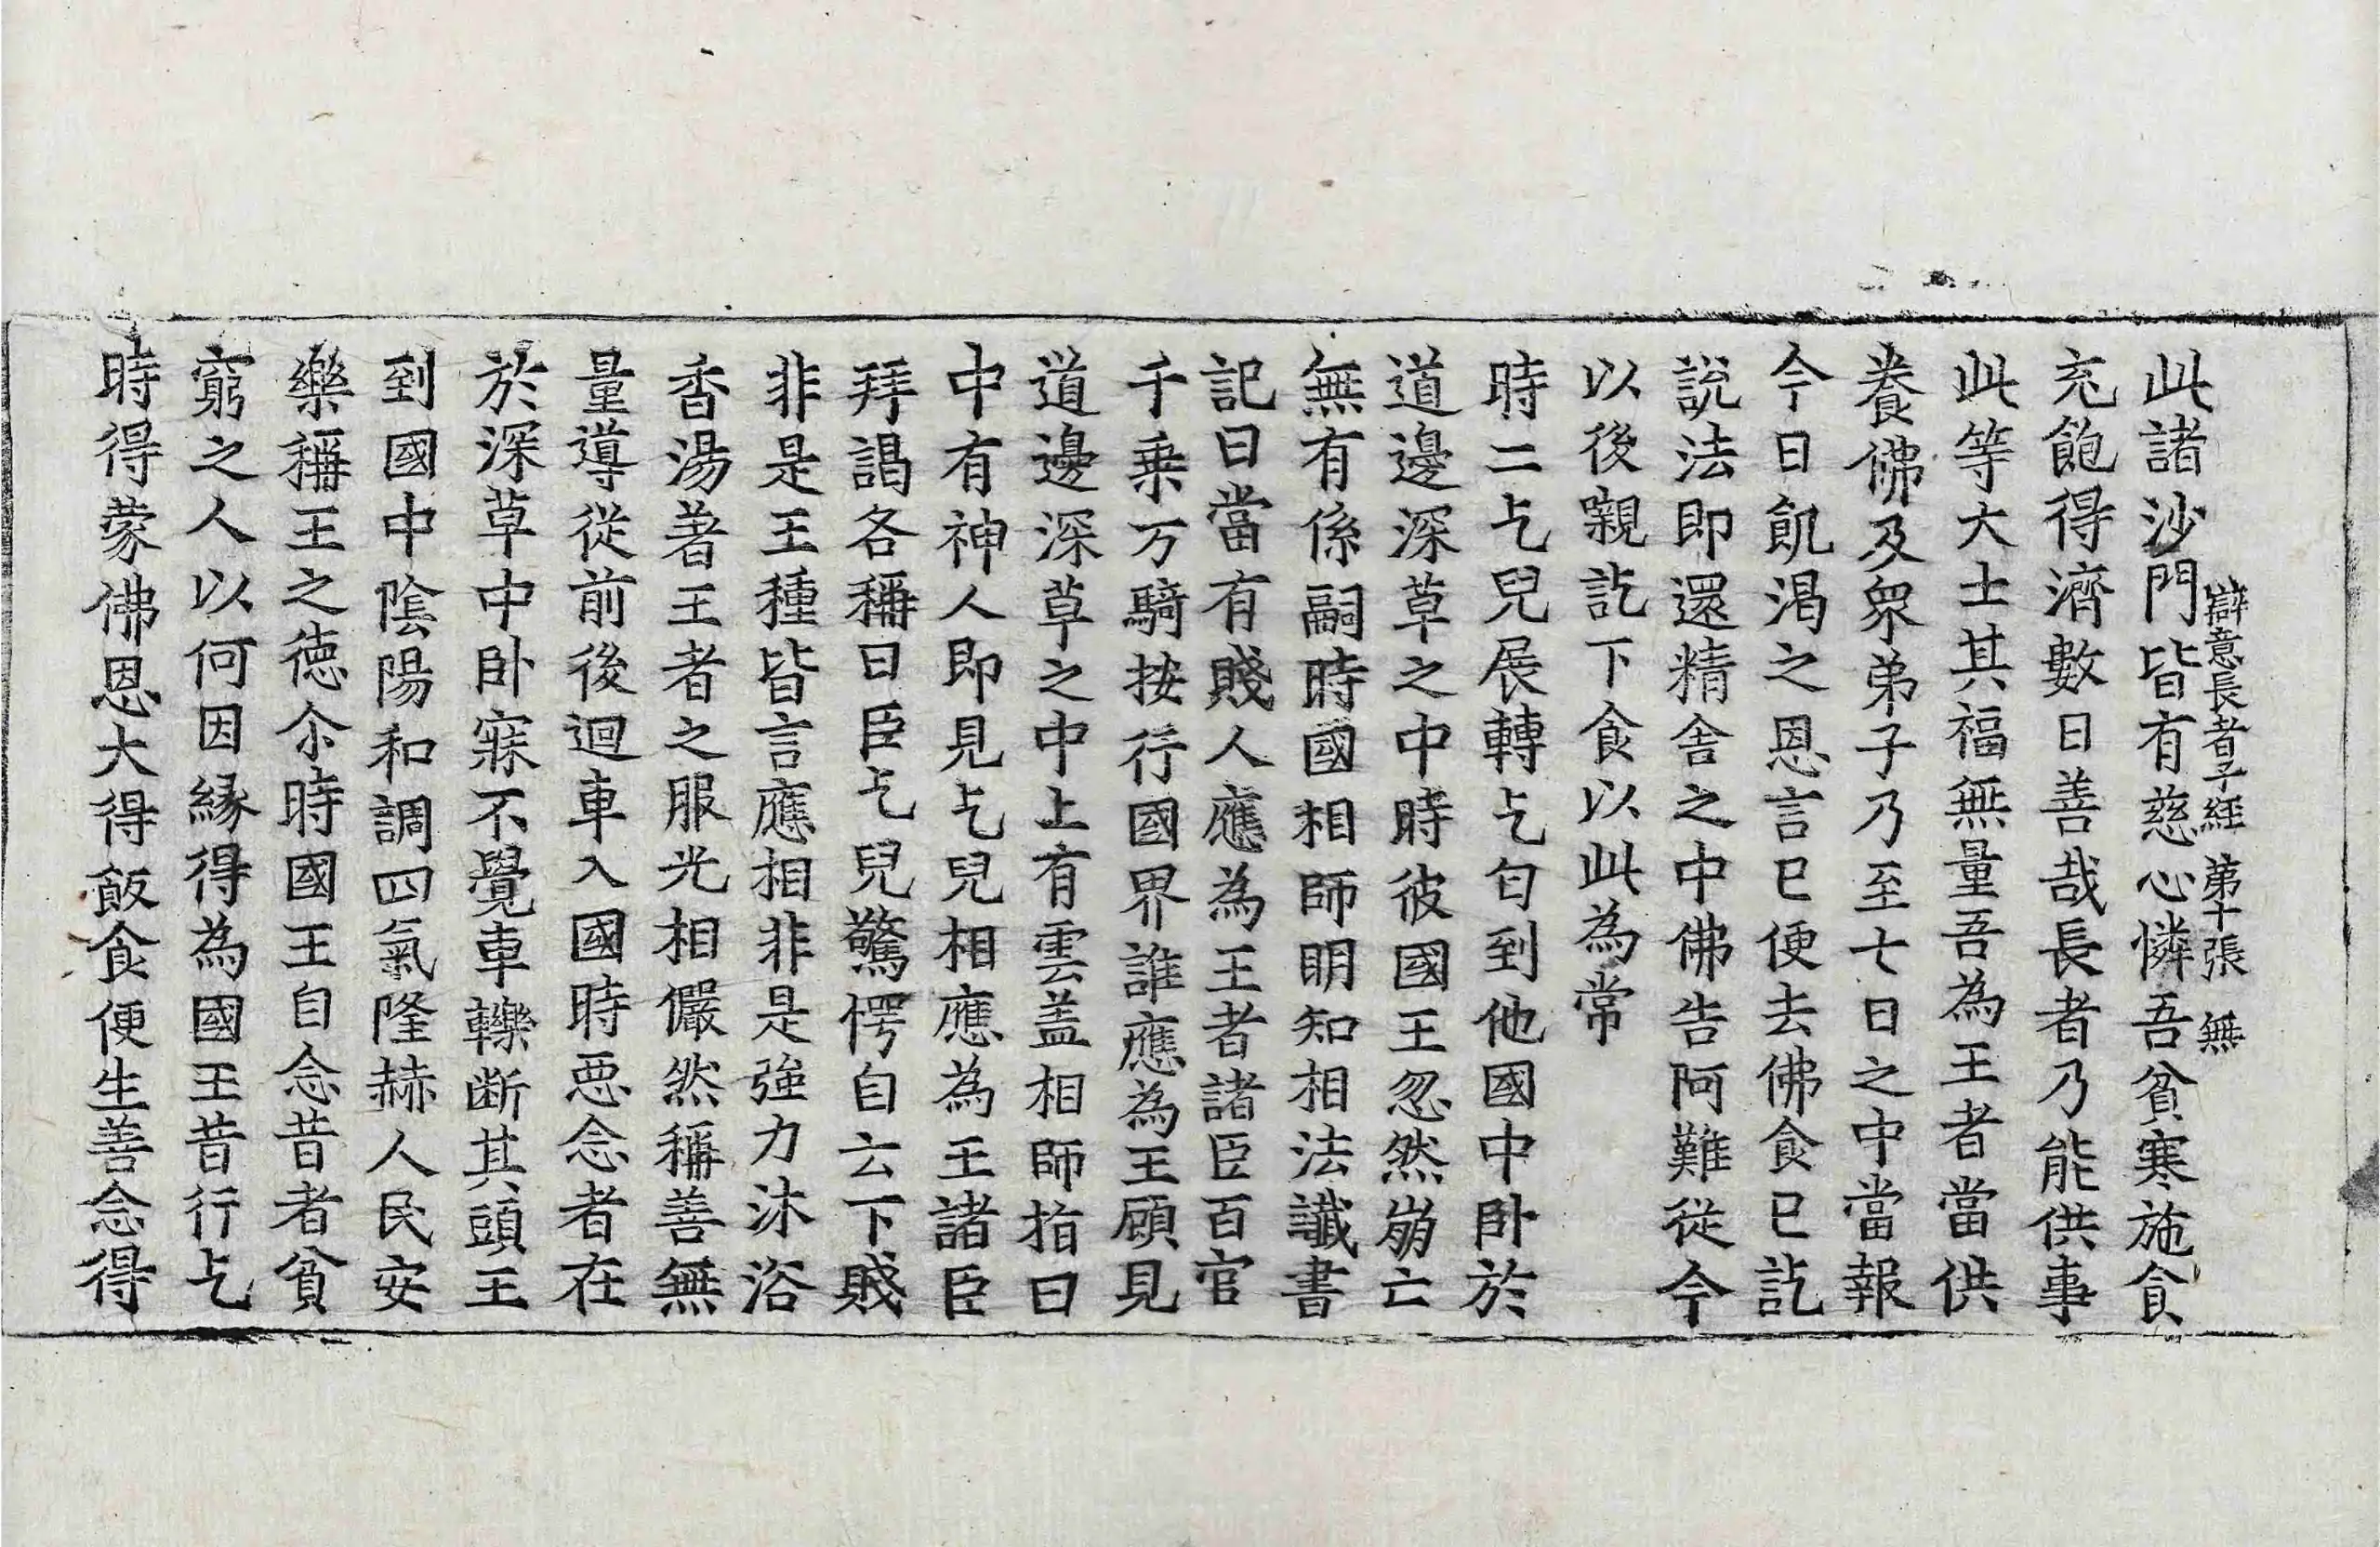 辯意長者子經 苐十張 無
此諸沙門皆有慈心憐吾貧寒施食
充飽得濟數日善哉長者乃能供事
此等大士其福無量吾為王者當供
養佛及衆弟子乃至七日之中當報
今日飢渴之恩言已便去佛食已訖
說法即還精舍之中佛告阿難從今
以後嚫訖下食以此為常
時二乞兒展轉乞匂到他國中卧於
道邊深草之中時彼國王忽然崩亡
無有係嗣時國相師明知相法讖書
記曰當有賤人應為王者諸臣百官
千乗万騎按行國界誰應為王顧見
道邊深草之中上有雲盖相師指曰
中有神人即見乞兒相應為王諸臣
拜謁各稱曰臣乞兒驚愕自云下賤
非是王種皆言應相非是強力沐浴
香湯著王者之服光相儼然稱善無
量導從前後迴車入國時惡念者在
於深草中卧寐不覺車轢断其頭王
到國中陰陽和調四氣隆赫人民安
樂稱王之德尒時國王自念昔者貧
窮之人以何因緣得為國王昔行乞
時得蒙佛恩大得飯食便生善念得